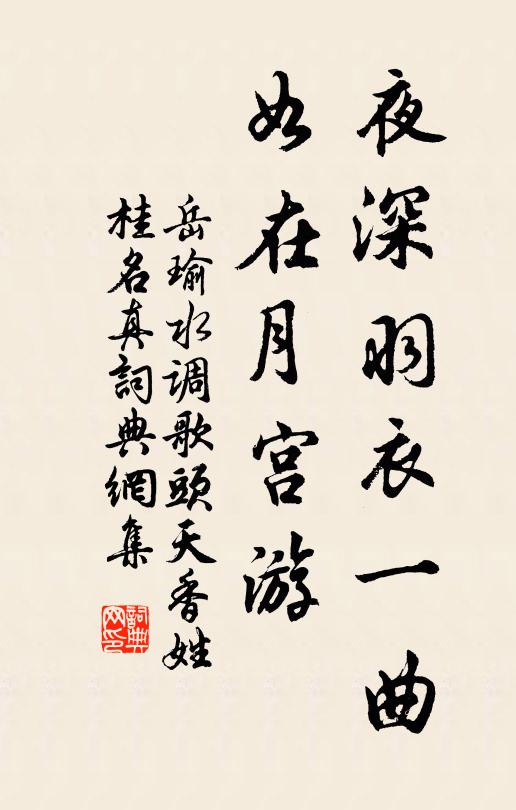 夜深羽衣一曲
如在月宫游
岳瑜水调歌頭天香姓
桂名真詞典網集
詞典
网印